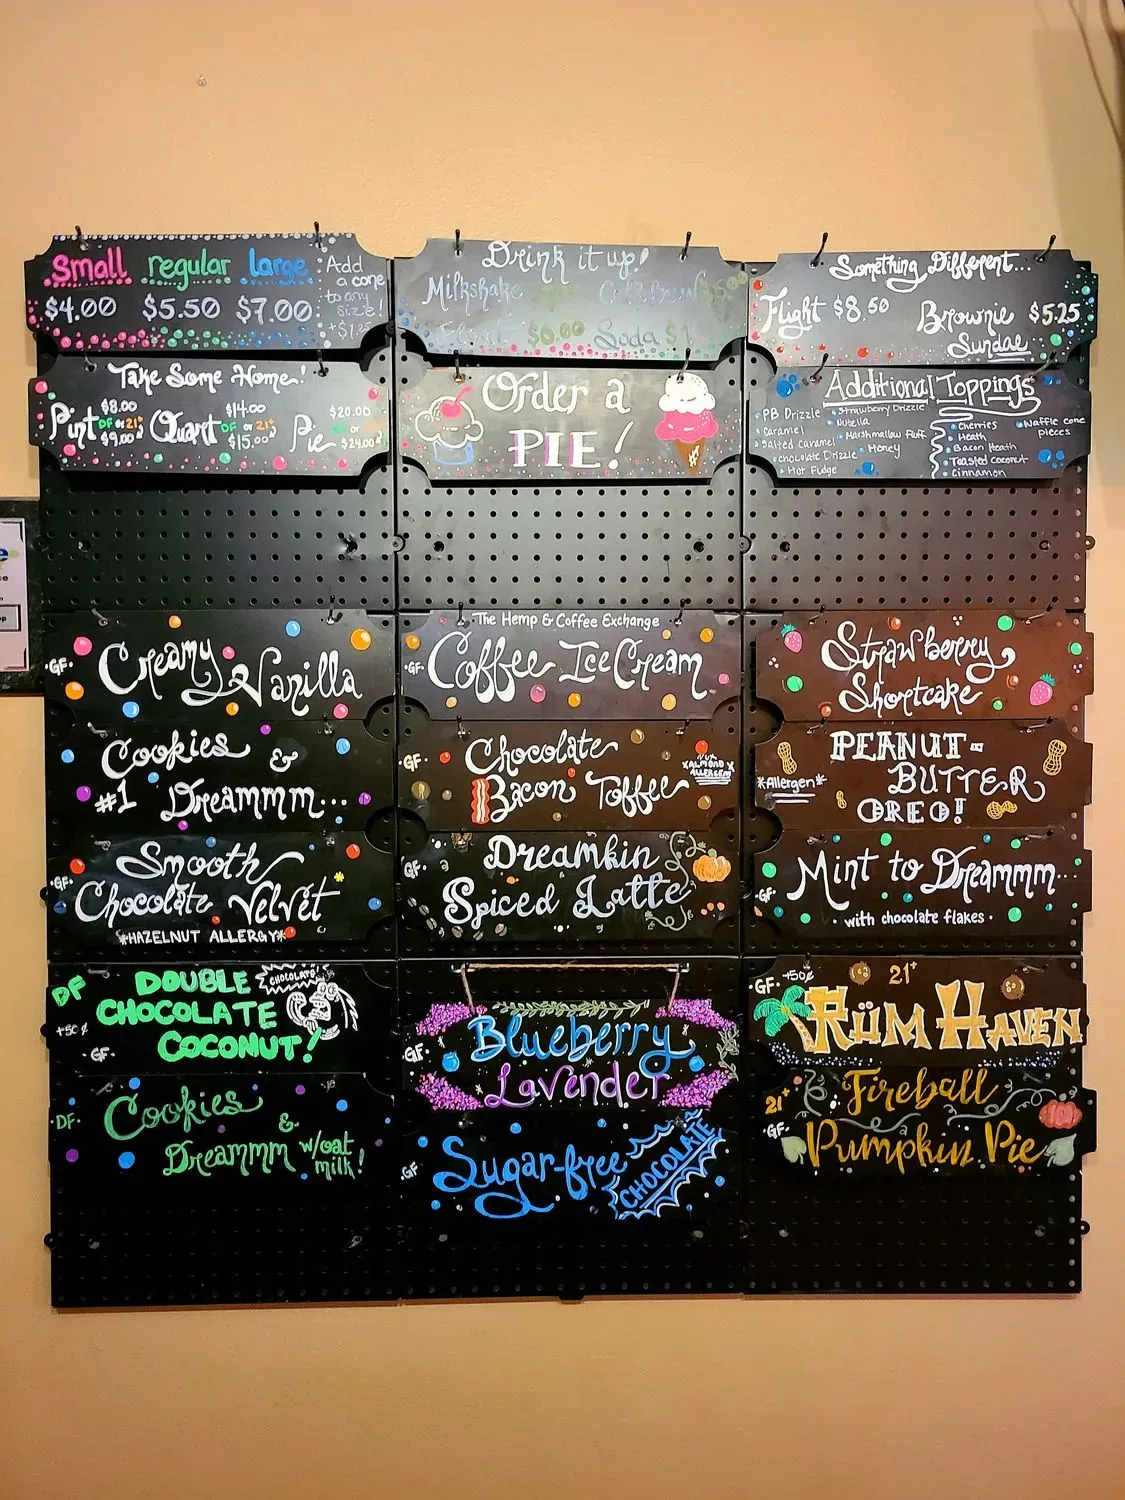 Small regular large
$4.00 $5.50 $7.00
Add
a cone
to any
size!
Drink it up!
Milkshake
$6.00 Soda $1
Something Different...
Flight $8.50 Brownie $5.25
Sundae
Take Some Home!
Pint $8.00
DF or 21+
$9.00
Quart $14.00
DF or 21+
$15.00
Pie $20.00
$24.00
Order a
PIE!
Additional Toppings
PB Drizzle
Caramel
Salted Caramel
Chocolate Drizzle
Hot Fudge
Strawberry Drizzle
Nutella
Marshmallow Fluff
Honey
Cherries
Heath
Bacon Heath
Toasted Coconut
Cinnamon
Waffle cone
pieces
·GF· Creamy
Vanilla
The Hemp & Coffee Exchange
·GF· Coffee Ice Cream
Strawberry
Shortcake
Cookies &
#1 Dreammm...
·GF· Chocolate
Bacon Toffee
*ALMOND*
ALLERGEN
PEANUT-
BUTTER
OREO!
*Allergen*
Smooth
·GF·
Chocolate Velvet
*HAZELNUT ALLERGY*
·GF· Dreamkin
Spiced Latte
·GF· Mint to Dreammm...
·with chocolate flakes·
DF DOUBLE
CHOCOLATE
COCONUT!
+50¢
·GF·
CHOCOLATE
Blueberry
·GF·
Lavender
·GF· +50¢ 21+
RÜM HAVEN
·DF· Cookies
&
Dreammm w/oat
milk!
·GF· Sugar-free
CHOCOLATE
Fireball
21+
·GF·
Pumpkin Pie